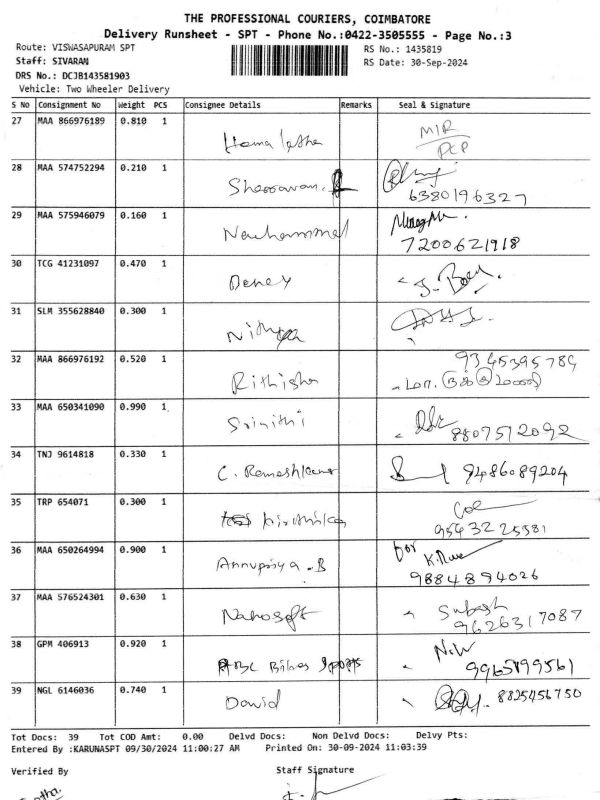 THE PROFESSIONAL COURIERS, COIMBATORE
Delivery Runsheet - SPT - Phone No.:0422-3505555 - Page No.:3
Route: VISWASAPURAM SPT RS No.: 1435819
Staff: SIVARAM RS Date: 30-Sep-2024
DRS No.: DCJB143581903
Vehicle: Two Wheeler Delivery
S No Consignment No Weight PCS Consignee Details Remarks Seal & Signature
27 MAA 866976189 0.810 1 Hema latha MIR
PCP
28 MAA 574752294 0.210 1 Sheosavan.
6380196327
29 MAA 575946079 0.160 1
7200621918
30 TCG 41231097 0.470 1 Deney
31 SLM 355628840 0.300 1 Nithya
32 MAA 866976192 0.520 1 Rithisha 9345395784
33 MAA 650341090 0.990 1 Srinithi
8807512092
34 TNJ 9614818 0.330 1 C. Rameshkumar 9486089204
35 TRP 654071 0.300 1 kirthika
9543225581
36 MAA 650264994 0.900 1 Annupriya - B for
9884894026
37 MAA 576524301 0.630 1 Nanosoft Subash
9626317087
38 GPM 406913 0.920 1 Bikes Sports
9965899561
39 NGL 6146036 0.740 1 David 8825456750
Tot Docs: 39 Tot COD Amt: 0.00 Delvd Docs: Non Delvd Docs: Delvy Pts:
Entered By :KARUNASPT 09/30/2024 11:00:27 AM Printed On: 30-09-2024 11:03:39
Verified By Staff Signature